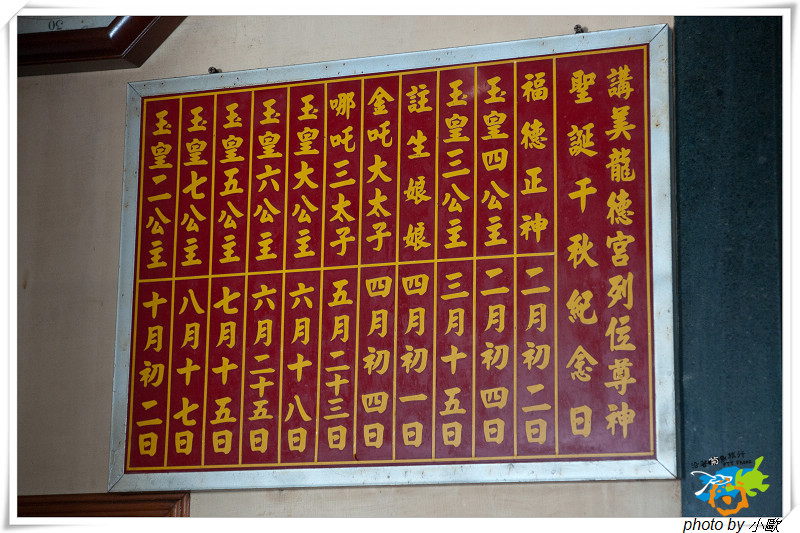 講美龍德宮列位尊神
聖誕千秋紀念日
福德正神 二月初二日
玉皇四公主 二月初四日
玉皇三公主 三月十五日
註生娘娘 四月初一日
金吒大太子 四月初四日
哪吒三太子 五月二十三日
玉皇大公主 六月十八日
玉皇六公主 六月二十五日
玉皇五公主 七月十五日
玉皇七公主 八月十七日
玉皇二公主 十月初二日
photo by 小歐